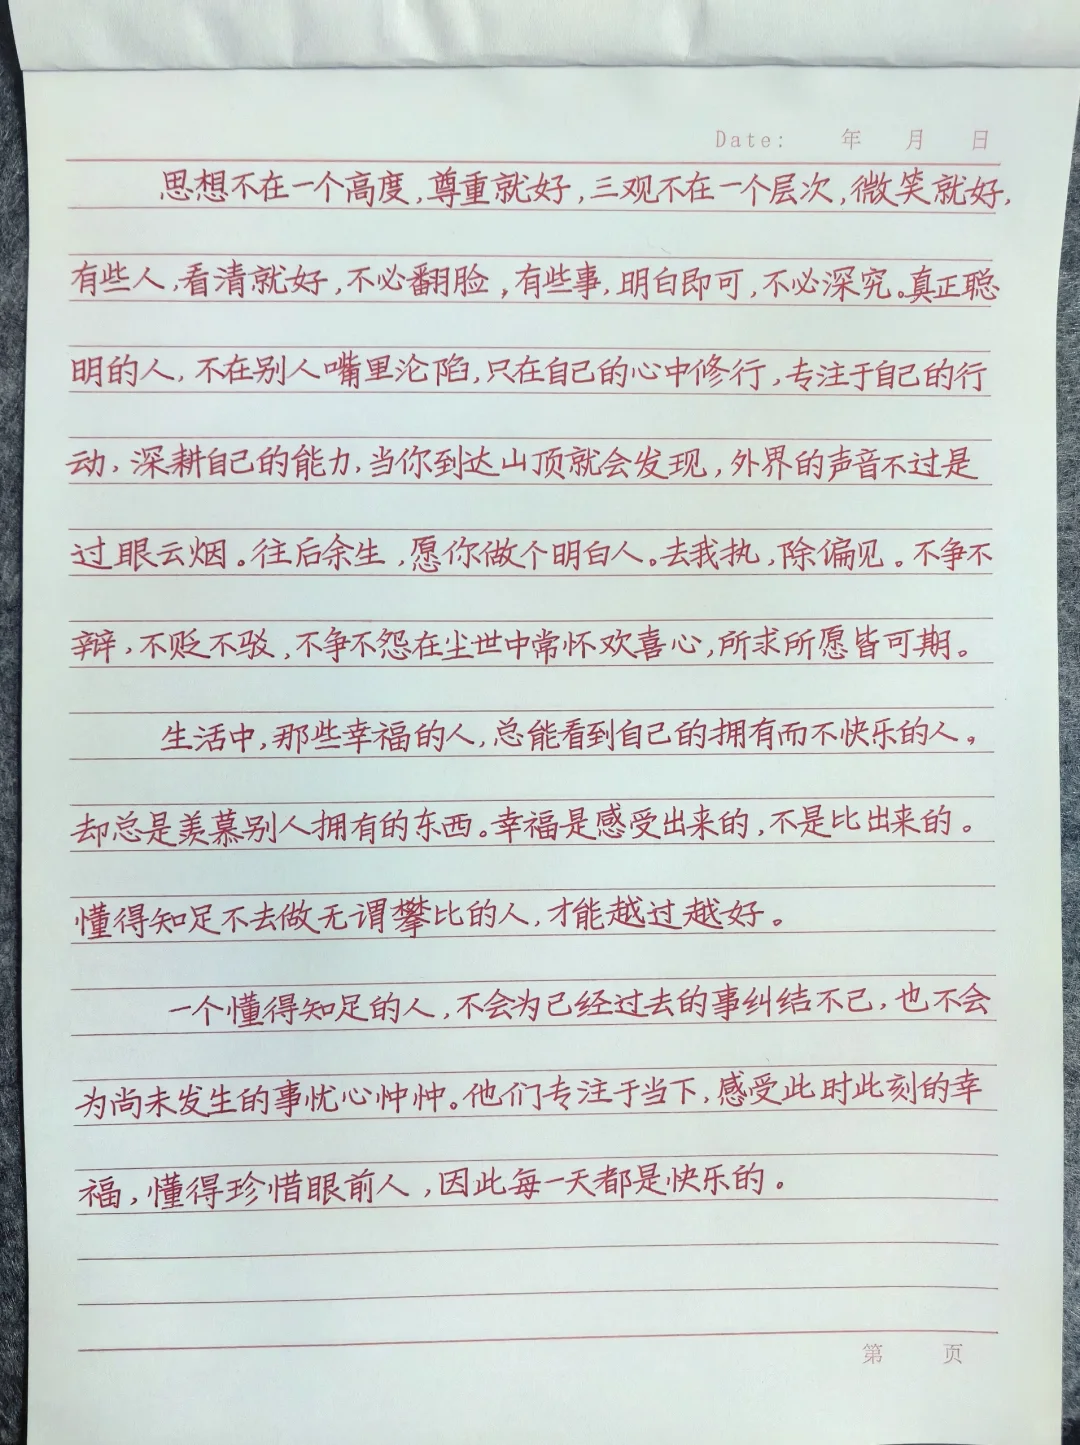 Date: 年 月 日
思想不在一个高度,尊重就好,三观不在一个层次,微笑就好,
有些人,看清就好,不必翻脸,有些事,明白即可,不必深究。真正聪
明的人,不在别人嘴里沦陷,只在自己的心中修行,专注于自己的行
动,深耕自己的能力,当你到达山顶就会发现,外界的声音不过是
过眼云烟。往后余生,愿你做个明白人。去我执,除偏见。不争不
辩,不贬不驳,不争不怨在尘世中常怀欢喜心,所求所愿皆可期。
生活中,那些幸福的人,总能看到自己的拥有而不快乐的人,
却总是羡慕别人拥有的东西。幸福是感受出来的,不是比出来的。
懂得知足不去做无谓攀比的人,才能越过越好。
一个懂得知足的人,不会为已经过去的事纠结不己,也不会
为尚未发生的事忧心忡忡。他们专注于当下,感受此时此刻的幸
福,懂得珍惜眼前人,因此每一天都是快乐的。
第 页